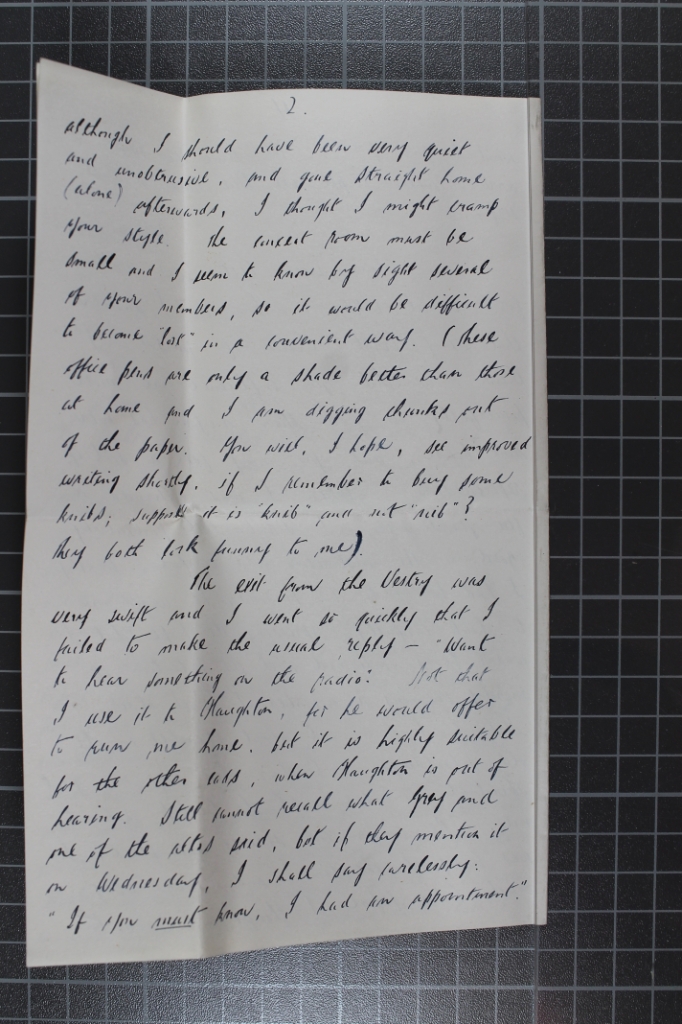 2.
although I should have been very quiet
and unobtrusive, and gone straight home
(alone) afterwards, I thought I might cramp
your style. The concert room must be
small and I seem to know by sight several
of your members, so it would be difficult
to become "lost" in a convenient way. (These
office pens are only a shade better than those
at home and I am digging chunks out
of the paper. You will, I hope, see improved
writing shortly, if I remember to buy some
knibs; suppose it is "knib" and not "nib"?
They both look funny to me).
The exit from the Vestry was
very swift and I went so quickly that I
failed to make the usual reply — "Want
to hear something on the radio?" Not that
I use it to Haughton, for he would offer
to run me home, but it is highly suitable
for the other lads, when Haughton is out of
hearing. Still cannot recall what Grey and
one of the altos said, but if they mention it
on Wednesday, I shall say carelessly:
"If you must know, I had an appointment."